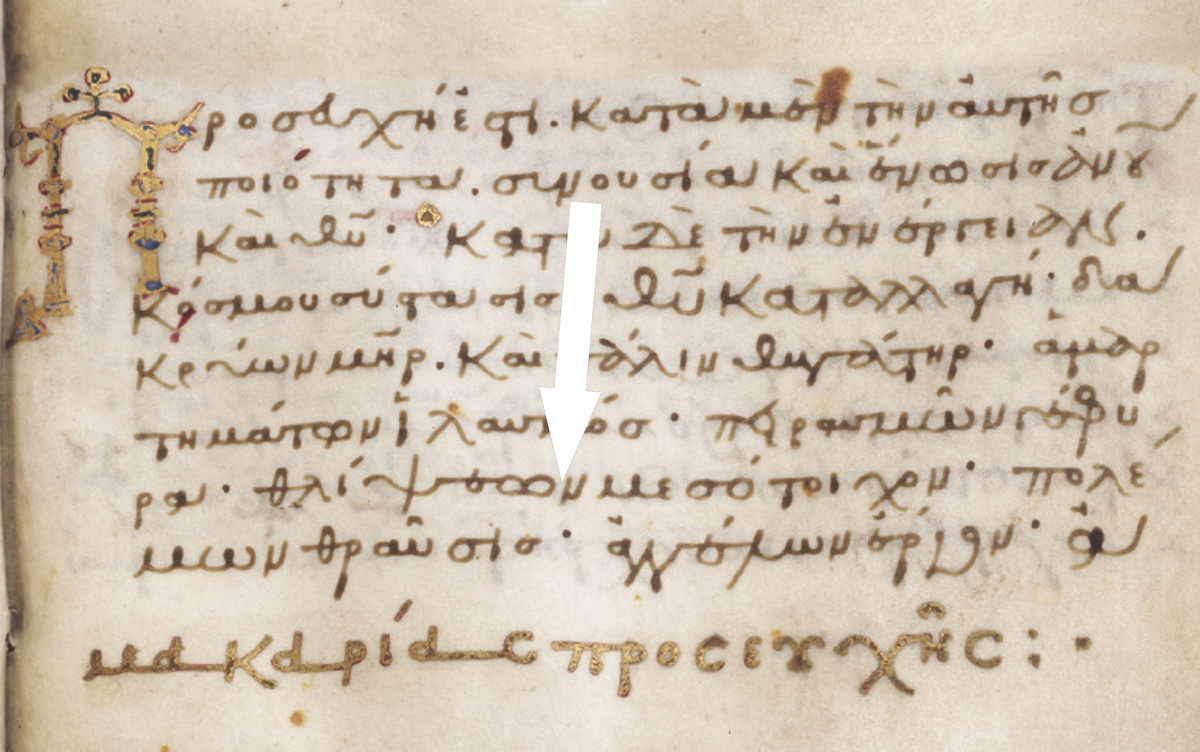 Προσευχή ἐστι. κατὰ μὲν τὴν αὐτῆς
ποιότητα. συνουσία καὶ ἕνωσις ἀνου
καὶ θυ· κατὰ δὲ τὴν ἐνέργειαν.
κόσμου σύστασις θυ καταλλαγή· δα
κρύων μηρ. καὶ πάλιν θυγάτηρ· ἁμαρ
τημάτων ἱλασμός· πειρασμῶν γέφυ
ρα· θλίψεων μεσότοιχον· πολέ
μων θραῦσις· ἀγγέλων ἔργον·
μακαρίας προσευχῆς:·